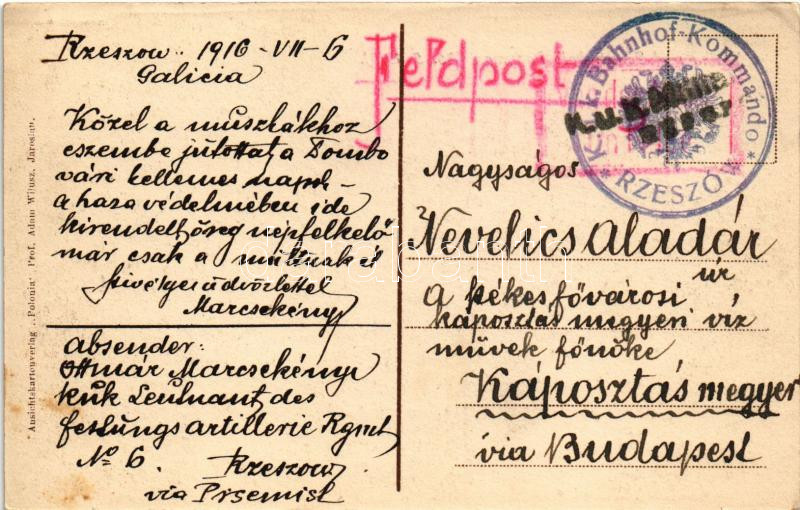 Rzeszow. 1916-VII-6
Galicia
Közel a muszkákhoz
eszembe jutottat a Dombo
vári kellemes napok –
a haza védelmében ide
kirendelt öreg népfelkelő
már csak a multnak él
Szivélyes üdvözlettel
Marcsekényi
absender:
Ottmár Marcsekényi
kuk Leutnant des
festungsartillerie Rgmt
No 6. Rzeszow
via Prsemisl
Feldpost
K. u. k. Bahnhof-Kommando
* RZESZÓW *
K.u.K. Militär
Nagyságos
Nevelics Aladár
úr
a székesfővárosi
káposztásmegyeri víz
művek főnöke
Káposztásmegyer
via Budapest
Ansichtskartenverlag „Polonia“ Prof. Adam Wilusz, Jaroslau.
darabanth